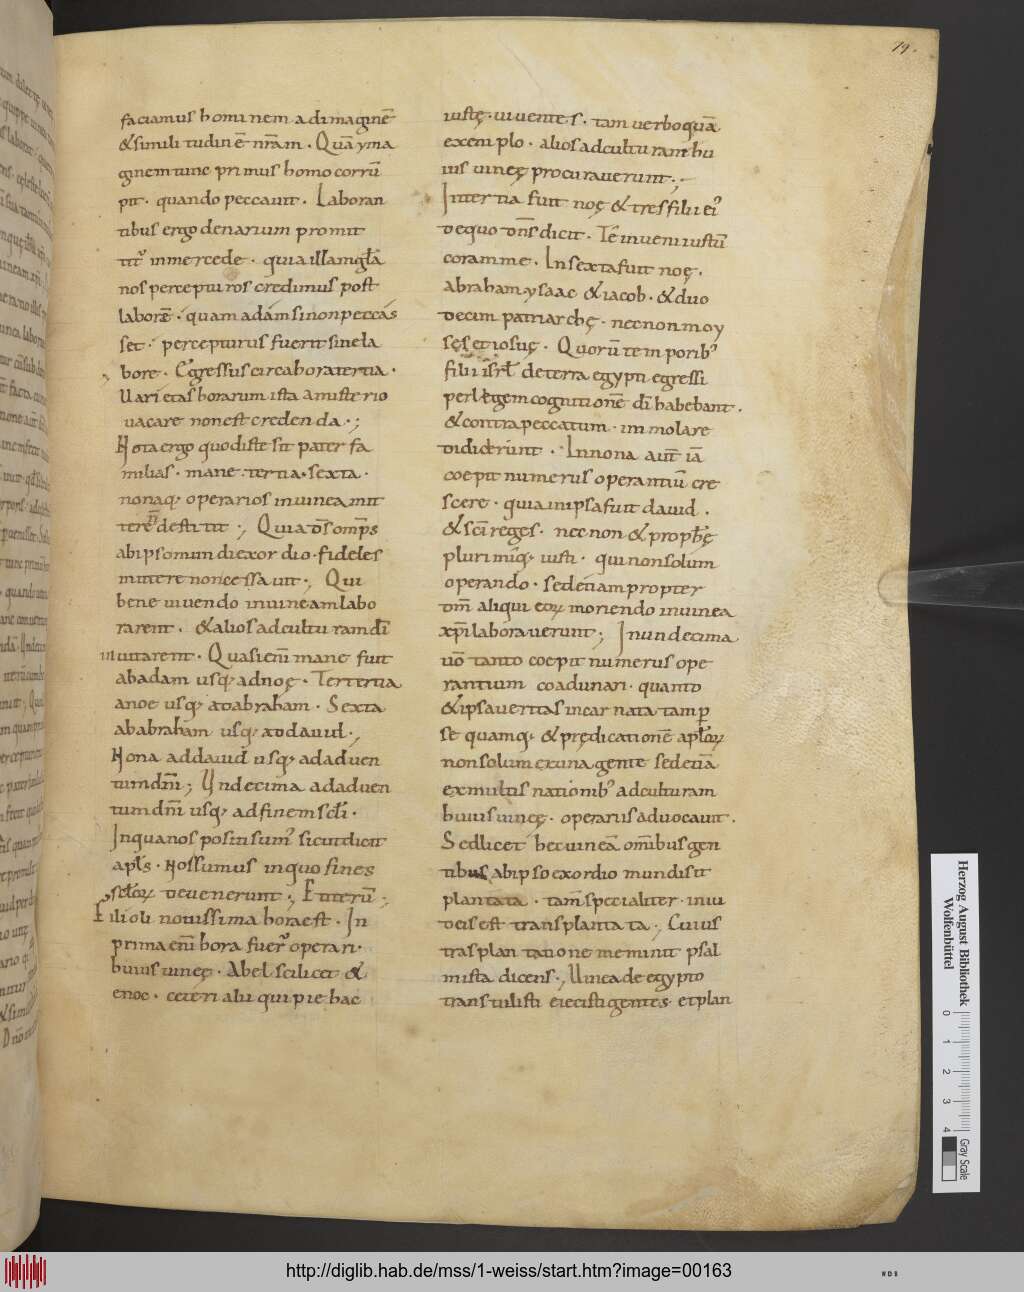 79.
faciamus hominem adimaginē
&similitudinē nr̄am. Quā yma
ginem tunc primus homo corrū
pit. quando peccauit. Laboran
tibus ergo denarium promit
tit᷑ inmercede. quia illam gl̄a
nos percepturos credimus post
laborē. quam adám sinonpeccás
set. percepturus fuerit sinela
bore. Egressus circa horatertia.
Uarietas horarum ista amisterio
uacare nonest credenda.;
Nota ergo quodiste sit pater fa
milias. mane. tertia. sexta.
nonaq; operarios inuineamit
tere destitit.; Quia d̄s omp̄s
abipsomundiexordio. fideles
mittere noncessauit.; Qui
bene uiuendo inuineamlabo
rarent. &alios adculturam dī
inuitarent. Quasi eni̅ mane fuit
abadam usq; adnoę. Tertertia
anoe usq; adabraham. Sexta
ababraham usq; addauid.;
Nona addauid usq; adaduen
tumdn̄i; Undecima adaduen
tumdn̄i usq; adfinem scl̄i.
Inquanos positi sum᷒ sicut dicit
apl̄s. Nos sumus inquo fines
scl̄oꝝ deuenerunt.; Et iterū;
Filioli nouissima hora est. In
prima eni̅ hora fuer̄ operari.
huius uineę. Abel scilicet &
enoc. ceteri alii qui pie hac
iustę. uiuentes. tam uerbo quā
exemplo. alios adculturam hu
ius uineę procurauerunt;.
Intertia fuit noę & tres filii ei᷒
dequo dn̄s dicit. Tē inueni iustū
coramme. Insexta fuit noę.
abraham ysaac &iacob. & duo
decim patriarchę. necnon moy
sęs et iosuę. Quorū temporib᷒
filii isrl̄ deterra egypti egressi
perlegem cognitionē dī habebant.
&contrapeccatum. immolare
didicerunt. Innona aut̄ iā
coepit numerus operantiū cre
scere. quia inipsa fuit dauid.
&sc̄i reges. necnon &proph̄ę
plurimiq; iusti. qui non solum
operando. sed etiam propter
dn̄i aliqui eoꝝ moriendo inuinea
xp̄i laborauerunt; Inundecima
uō tanto coepit numerus ope
rantium coadunari. quanto
&ipsa ueritas incarnata tam ꝑ
se quamq; &prędicationē apl̄oꝝ
non solum exuna gente sed etiā
exmultis nationib᷒ adculturam
huius uineę. operarios aduocauit.
Sedlicet hec uineā omnibus gen
tibus abipso exordio mundi sit
plantata. tam̄ specialiter. iniu
deis est transplantata.; Cuius
trasplantatione meminit psal
mista dicens.; Uinea de egypto
transtulisti eiecisti gentes. et plan
Herzog August Bibliothek
Wolfenbüttel
0 1 2 3 4
Gray Scale
http://diglib.hab.de/mss/1-weiss/start.htm?image=00163